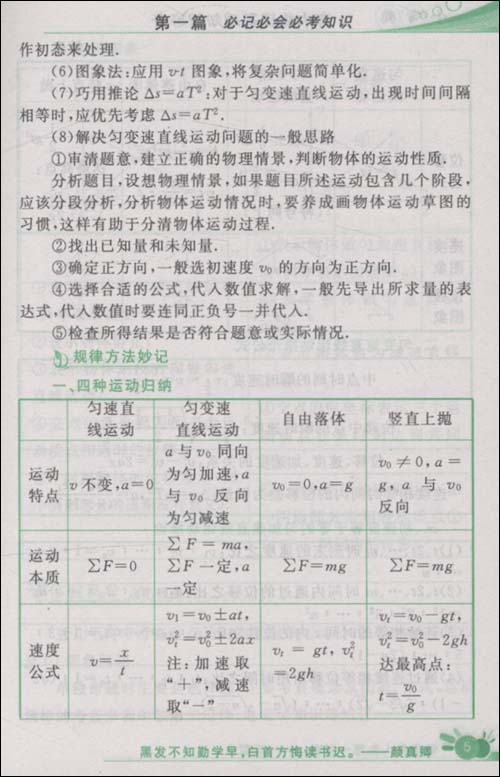 第一篇 必记必会必考知识
作初态来处理.
(6)图象法:应用 v-t 图象,将复杂问题简单化.
(7)巧用推论 Δs=aT²:对于匀变速直线运动,出现时间间隔
相等时,应优先考虑 Δs=aT².
(8)解决匀变速直线运动问题的一般思路
①审清题意,建立正确的物理情景,判断物体的运动性质.
分析题目,设想物理情景,如果题目所述运动包含几个阶段,
应该分段分析,分析物体运动情况时,要养成画物体运动草图的
习惯,这样有助于分清物体运动过程.
②找出已知量和未知量.
③确定正方向,一般选初速度 v₀ 的方向为正方向.
④选择合适的公式,代入数值求解,一般先导出所求量的表
达式,代入数值时要连同正负号一并代入.
⑤检查所得结果是否符合题意或实际情况.
规律方法妙记
一、四种运动归纳
匀速直
线运动
匀变速
直线运动
自由落体
竖直上抛
运动
特点
v 不变,a=0
a 与 v₀ 同向
为匀加速,a
与 v₀ 反向
为匀减速
v₀=0,a=g
v₀≠0,a=
g,a 与 v₀
反向
运动
本质
∑F=0
∑F=ma,
∑F 一定,a
一定
∑F=mg
∑F=mg
速度
公式
v=x/t
v₁=v₀±at,
vₜ²=v₀²±2ax
注:加速取
“+”,减速
取“-”
vₜ=gt,vₜ²
=2gh
vₜ=v₀-gt,
vₜ²=v₀²-2gh
达最高点:
t=v₀/g
黑发不知勤学早,白首方悔读书迟。——颜真卿
5